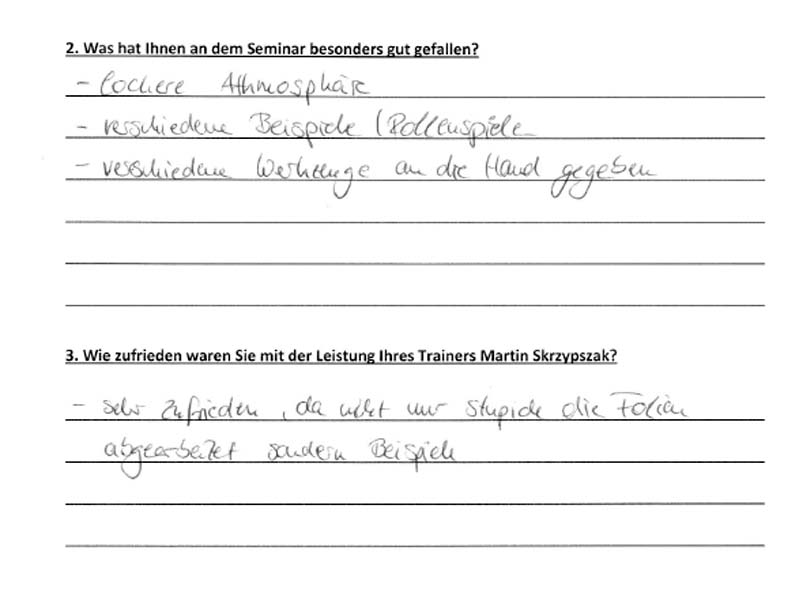 2. Was hat Ihnen an dem Seminar besonders gut gefallen?
- lockere Athmosphäre
- verschiedene Beispiele / Rollenspiele
- verschiedene Werkzeuge an die Hand gegeben
3. Wie zufrieden waren Sie mit der Leistung Ihres Trainers Martin Skrzypszak?
- sehr zufrieden, da nicht nur stupide die Folien
abgearbeitet sondern Beispiele